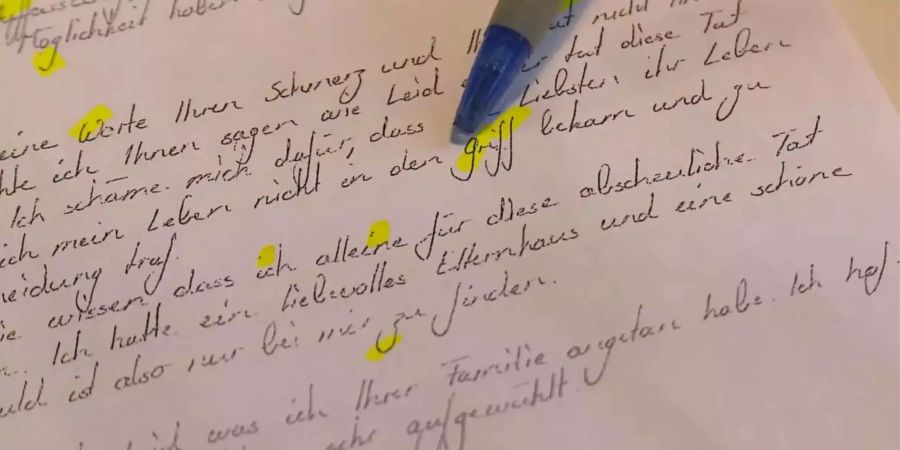 Möglichkeit haben
eine Worte Ihren Schmerz und
ich Ihnen sagen wie Leid tut diese Tat
Ich schäme mich dafür, dass Liebsten ihr Leben
ich mein Leben nicht in den griff bekam und zu
eidung traf.
wissen dass ich alleine für diese abscheuliche Tat
Ich hatte ein liebevolles Elternhaus und eine schöne
uld ist also nur bei mir zu finden.
was ich Ihrer Familie angetan habe. Ich hof
sehr aufgewühlt.